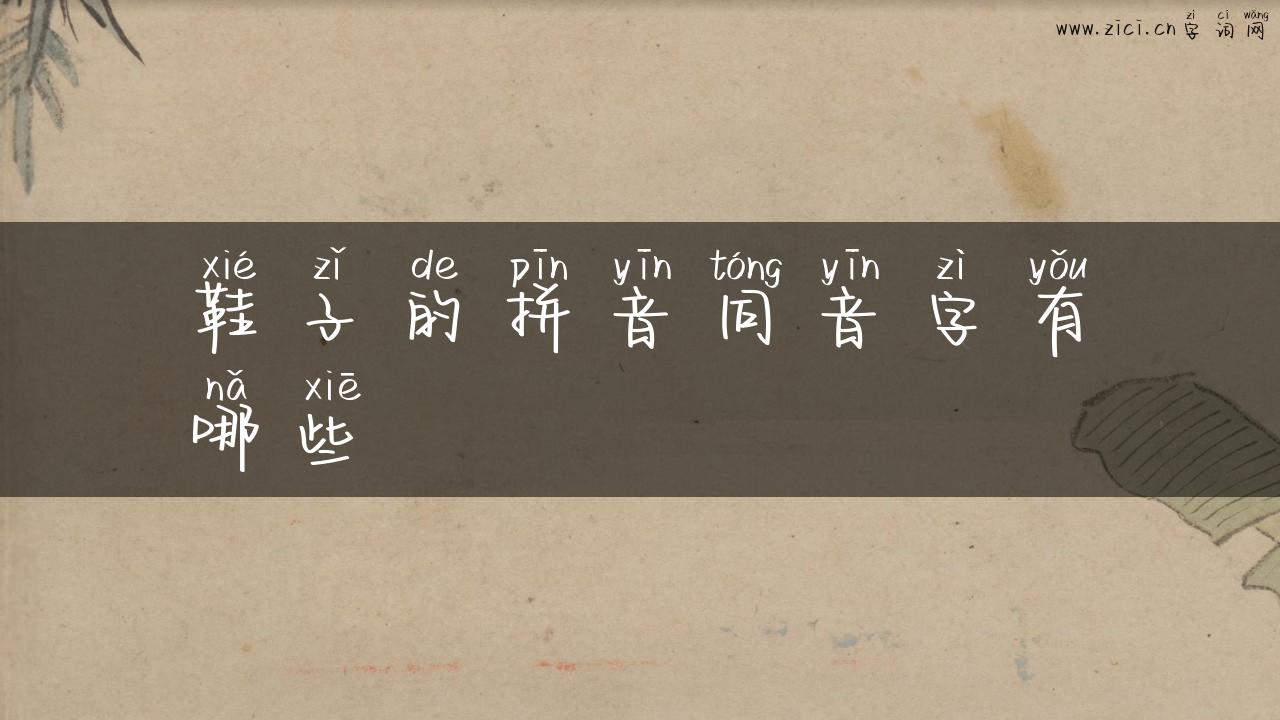 zì cí wǎng
www.zici.cn 字 词 网
xié zǐ de pīn yīn tóng yīn zì yǒu
鞋 子 的 拼 音 同 音 字 有
nǎ xiē
哪 些